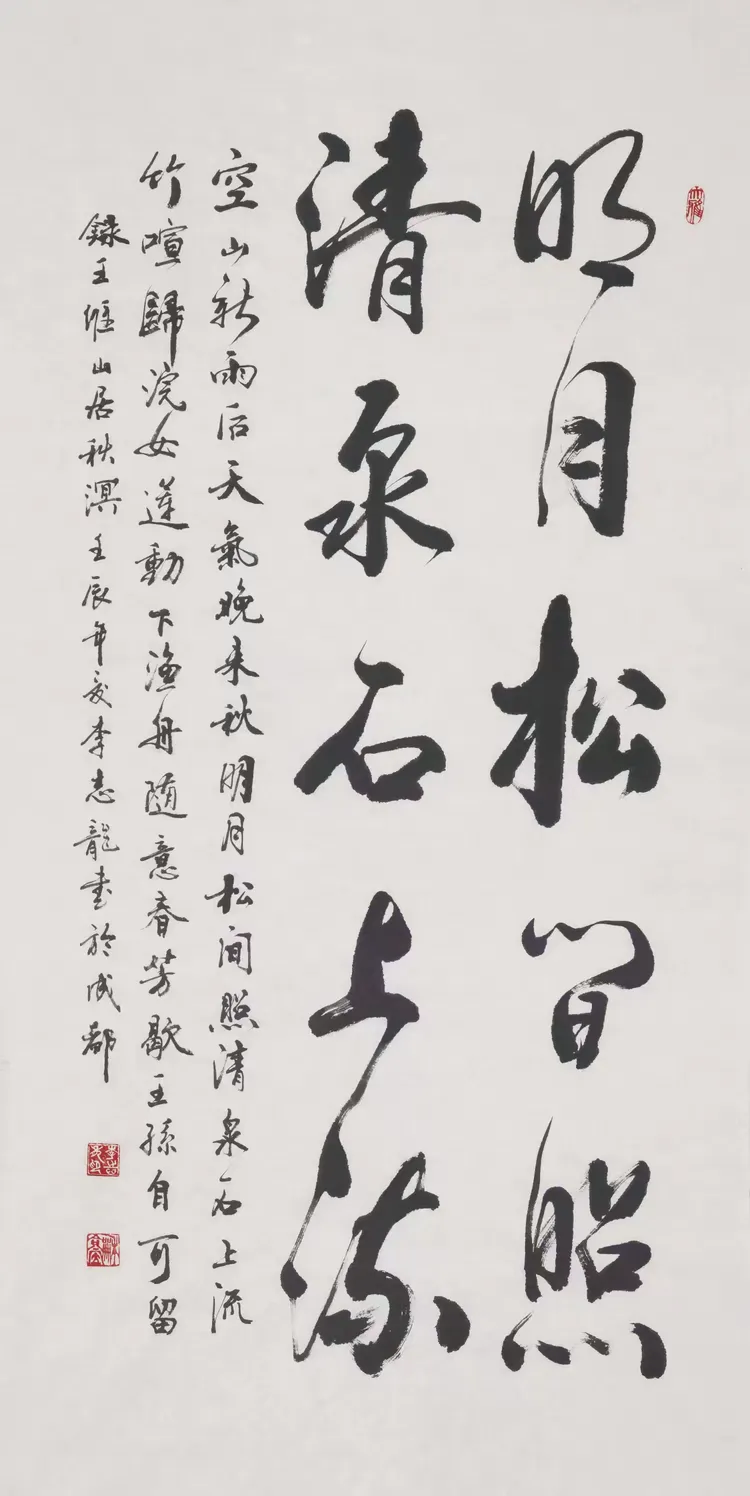 明月松间照
清泉石上流
空山新雨后天氣晚来秋明月松间照清泉石上流
竹喧歸浣女蓮動下漁舟随意春芳歇王孫自可留
録王維山居秋溟壬辰年夏李志龍书於成都